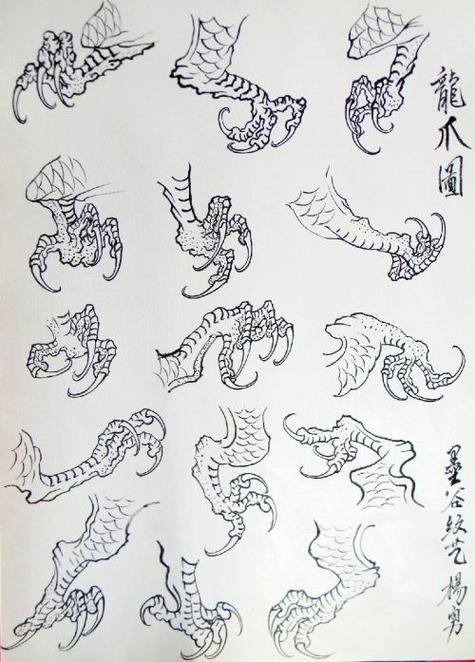 龍爪圖
墨谷紋艺 楊勇